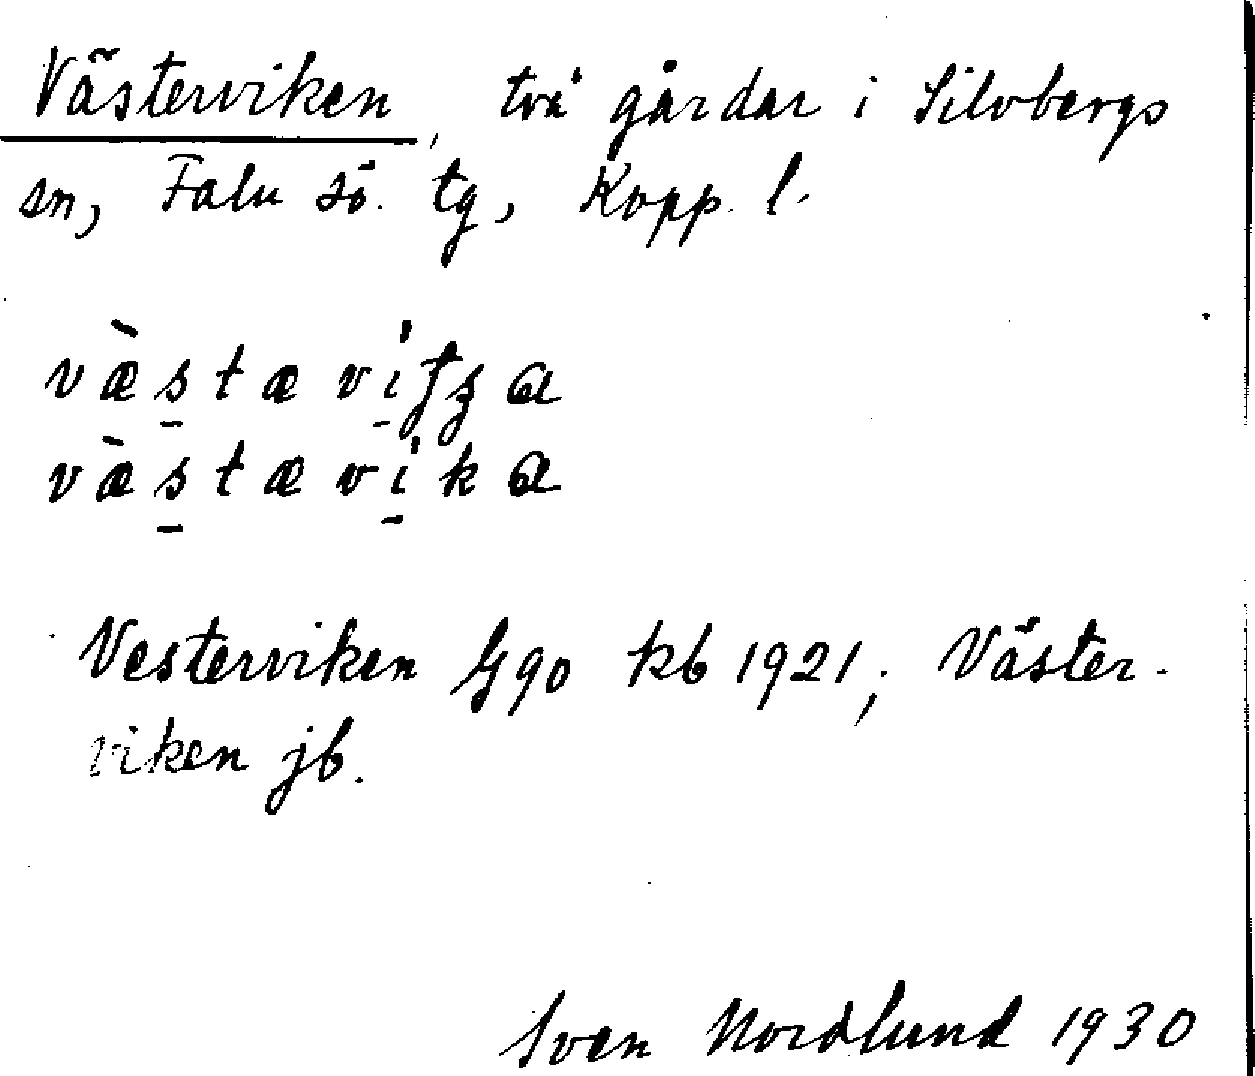 Västerviken, två gårdar i Silvbergs
sn, Falu sö. tg, Kopp. l.
væ̀s̠tævi̠ʈʂa
væ̀s̠tævi̠ka
Vesterviken G90 kb 1921; Väster-
viken jb.
Sven Nordlund 1930